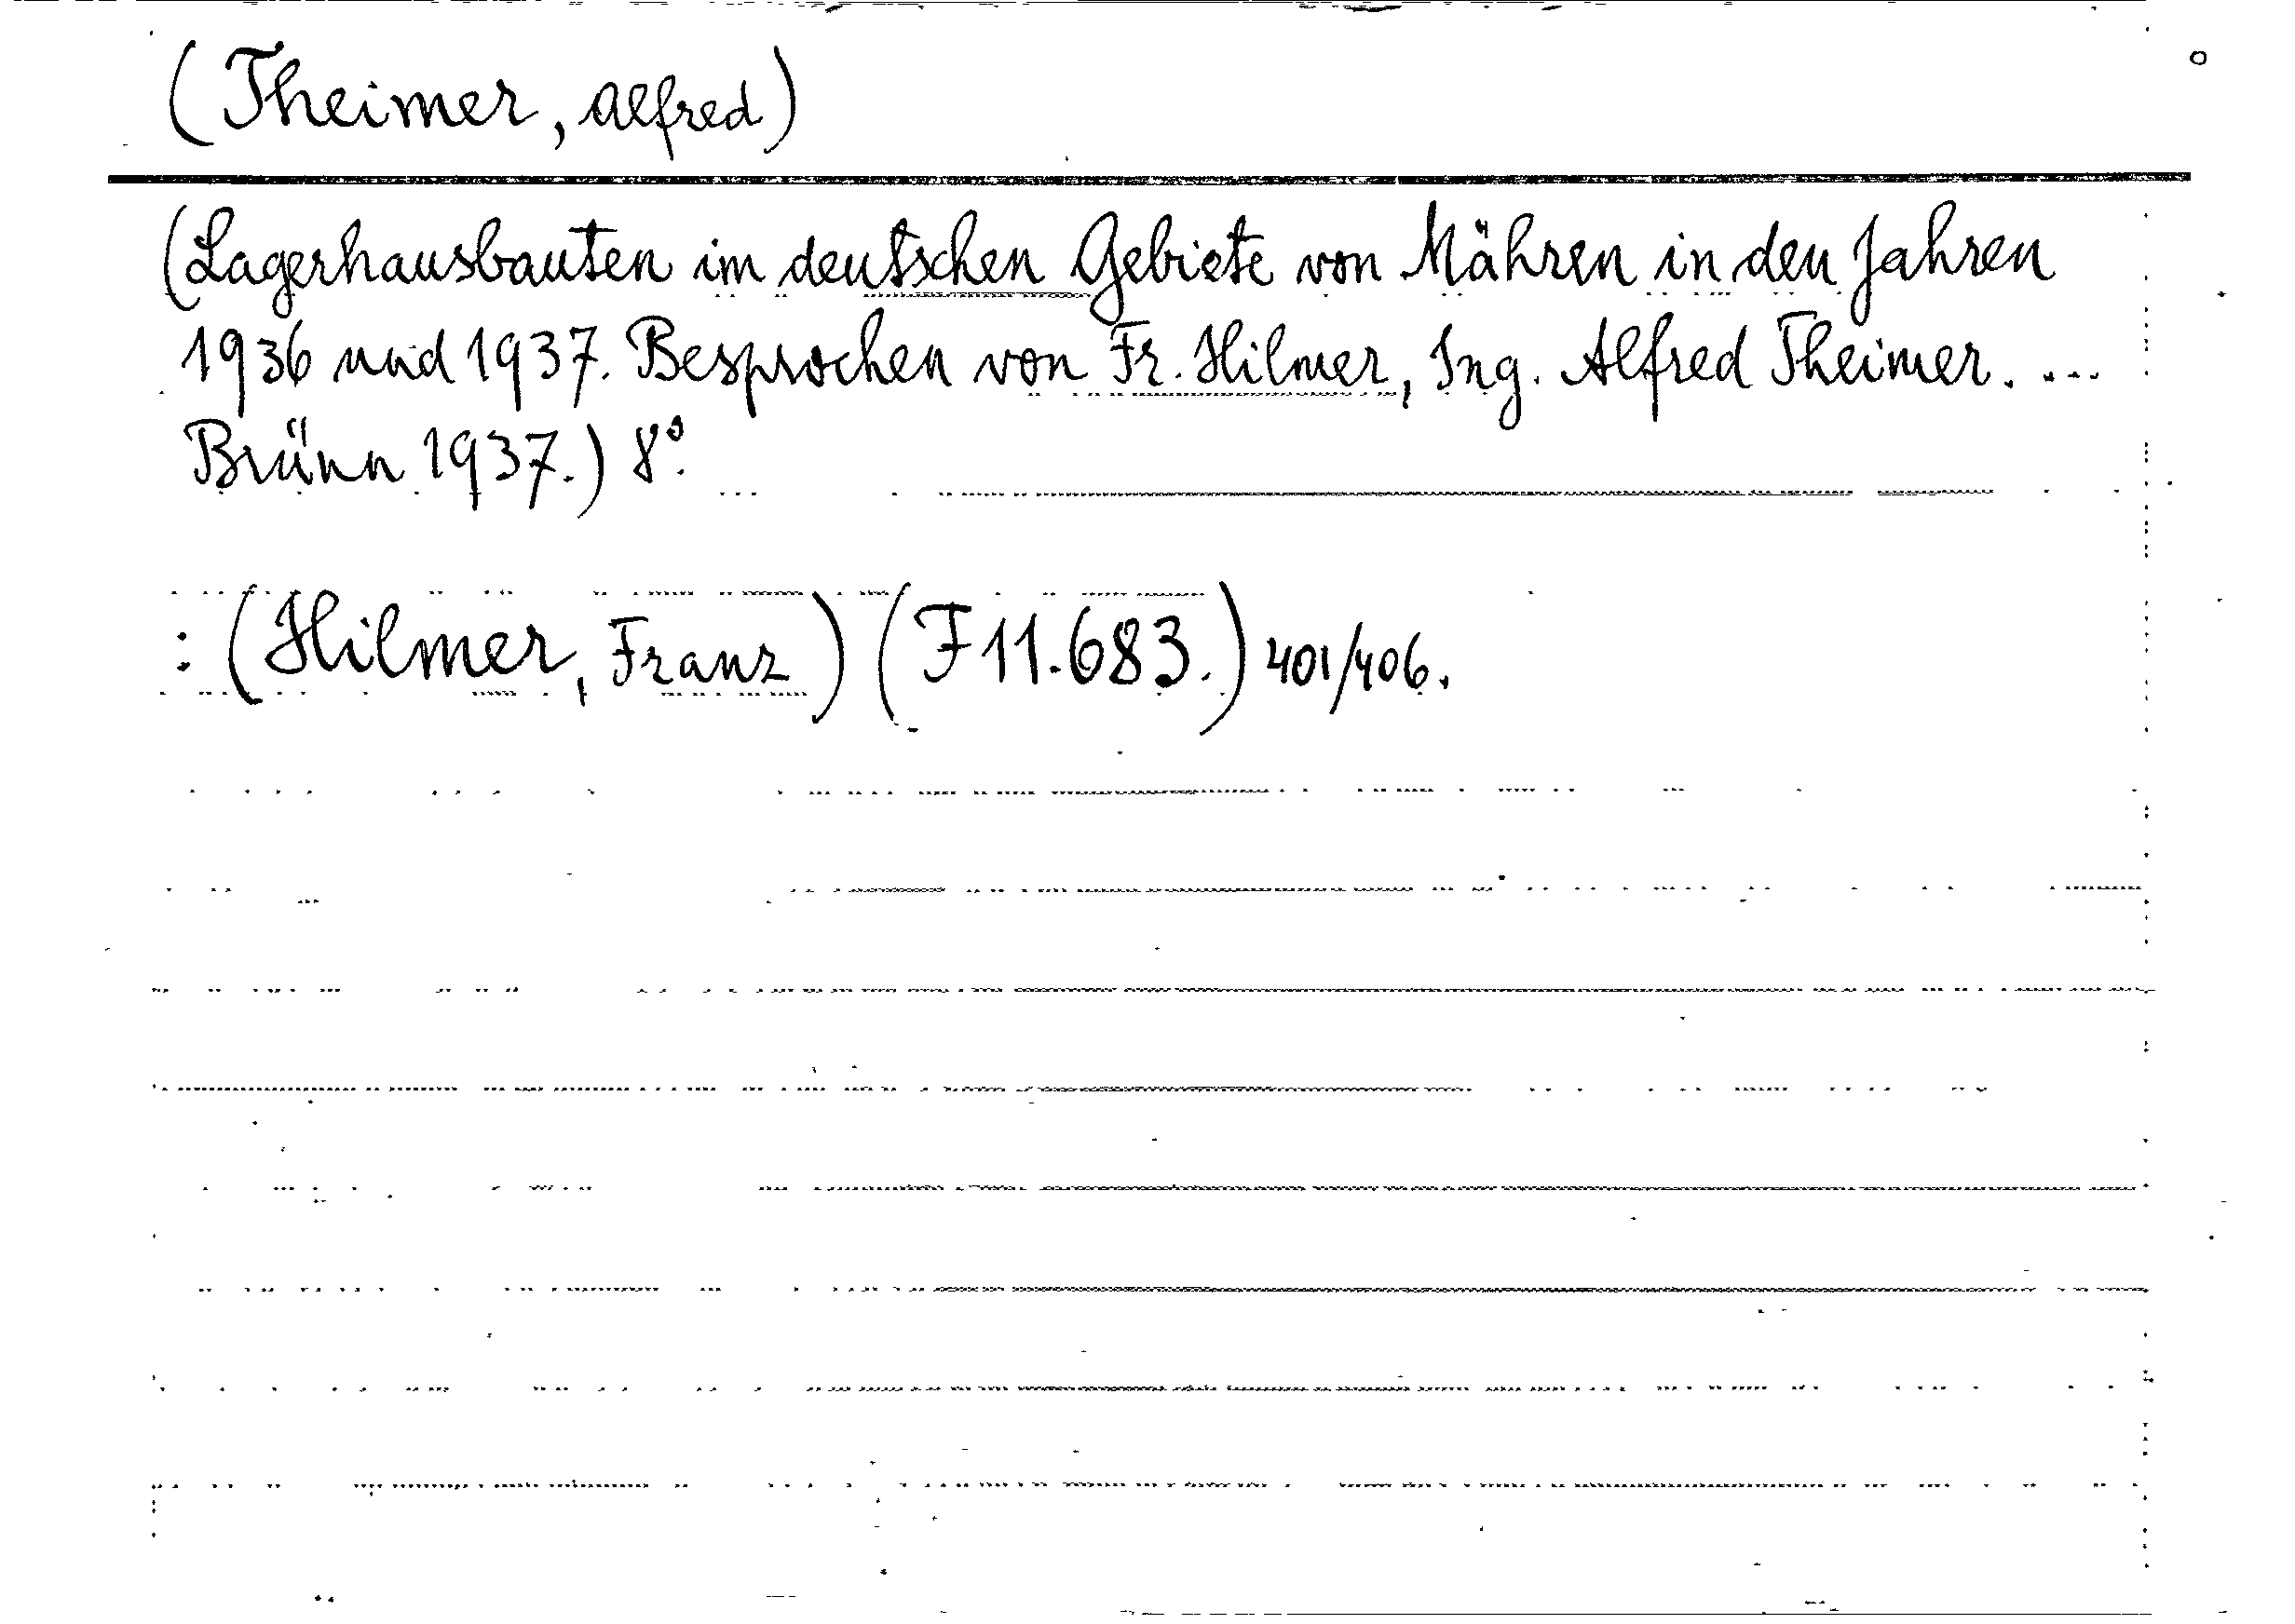 (Theimer, Alfred)
(Lagerhausbauten im deutschen Gebiete von Mähren in den Jahren
1936 und 1937. Besprochen von Fr. Hilmer, Ing. Alfred Theimer. ...
Brünn 1937.) 8°.
: (Hilmer, Franz) (F 11.683.) 401/406.